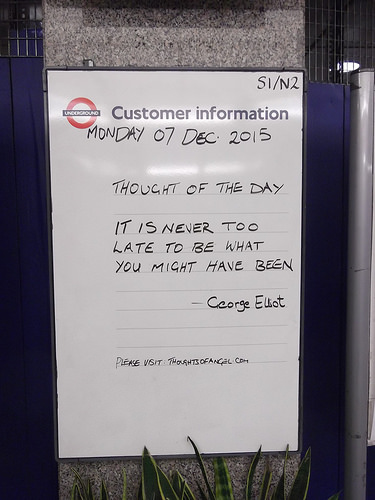 S1/N2
UNDERGROUND Customer information
MONDAY 07 DEC. 2015
THOUGHT OF THE DAY
IT IS NEVER TOO
LATE TO BE WHAT
YOU MIGHT HAVE BEEN
- George Elliot
PLEASE VISIT: THOUGHTSOFANGEL.COM